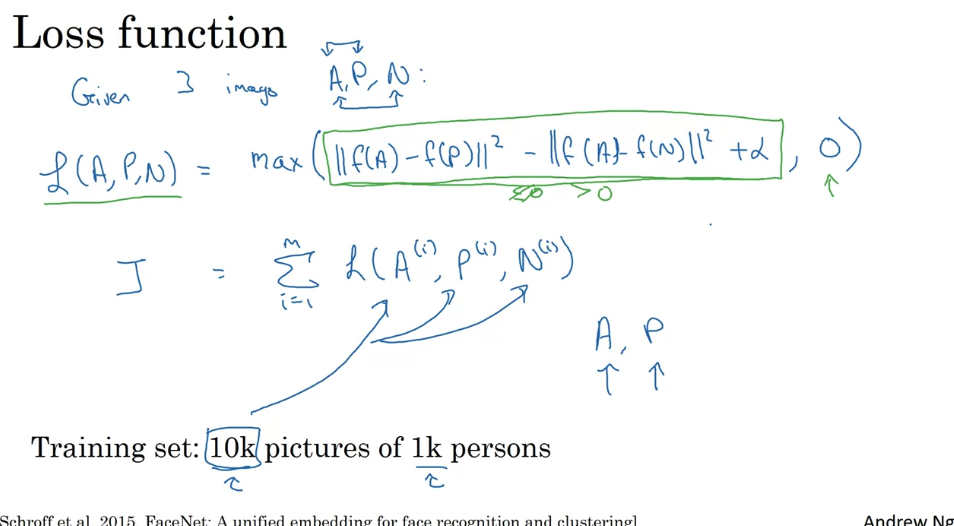 Loss function
Given 3 images A, P, N :
ℒ(A, P, N) = max(‖f(A) − f(P)‖² − ‖f(A) − f(N)‖² + α, 0)
≤0 >0
J = ∑ᵢ₌₁ᵐ ℒ(A⁽ⁱ⁾, P⁽ⁱ⁾, N⁽ⁱ⁾)
A, P
Training set: 10k pictures of 1k persons
Schroff et al. 2015, FaceNet: A unified embedding for face recognition and clustering]
Andrew Ng